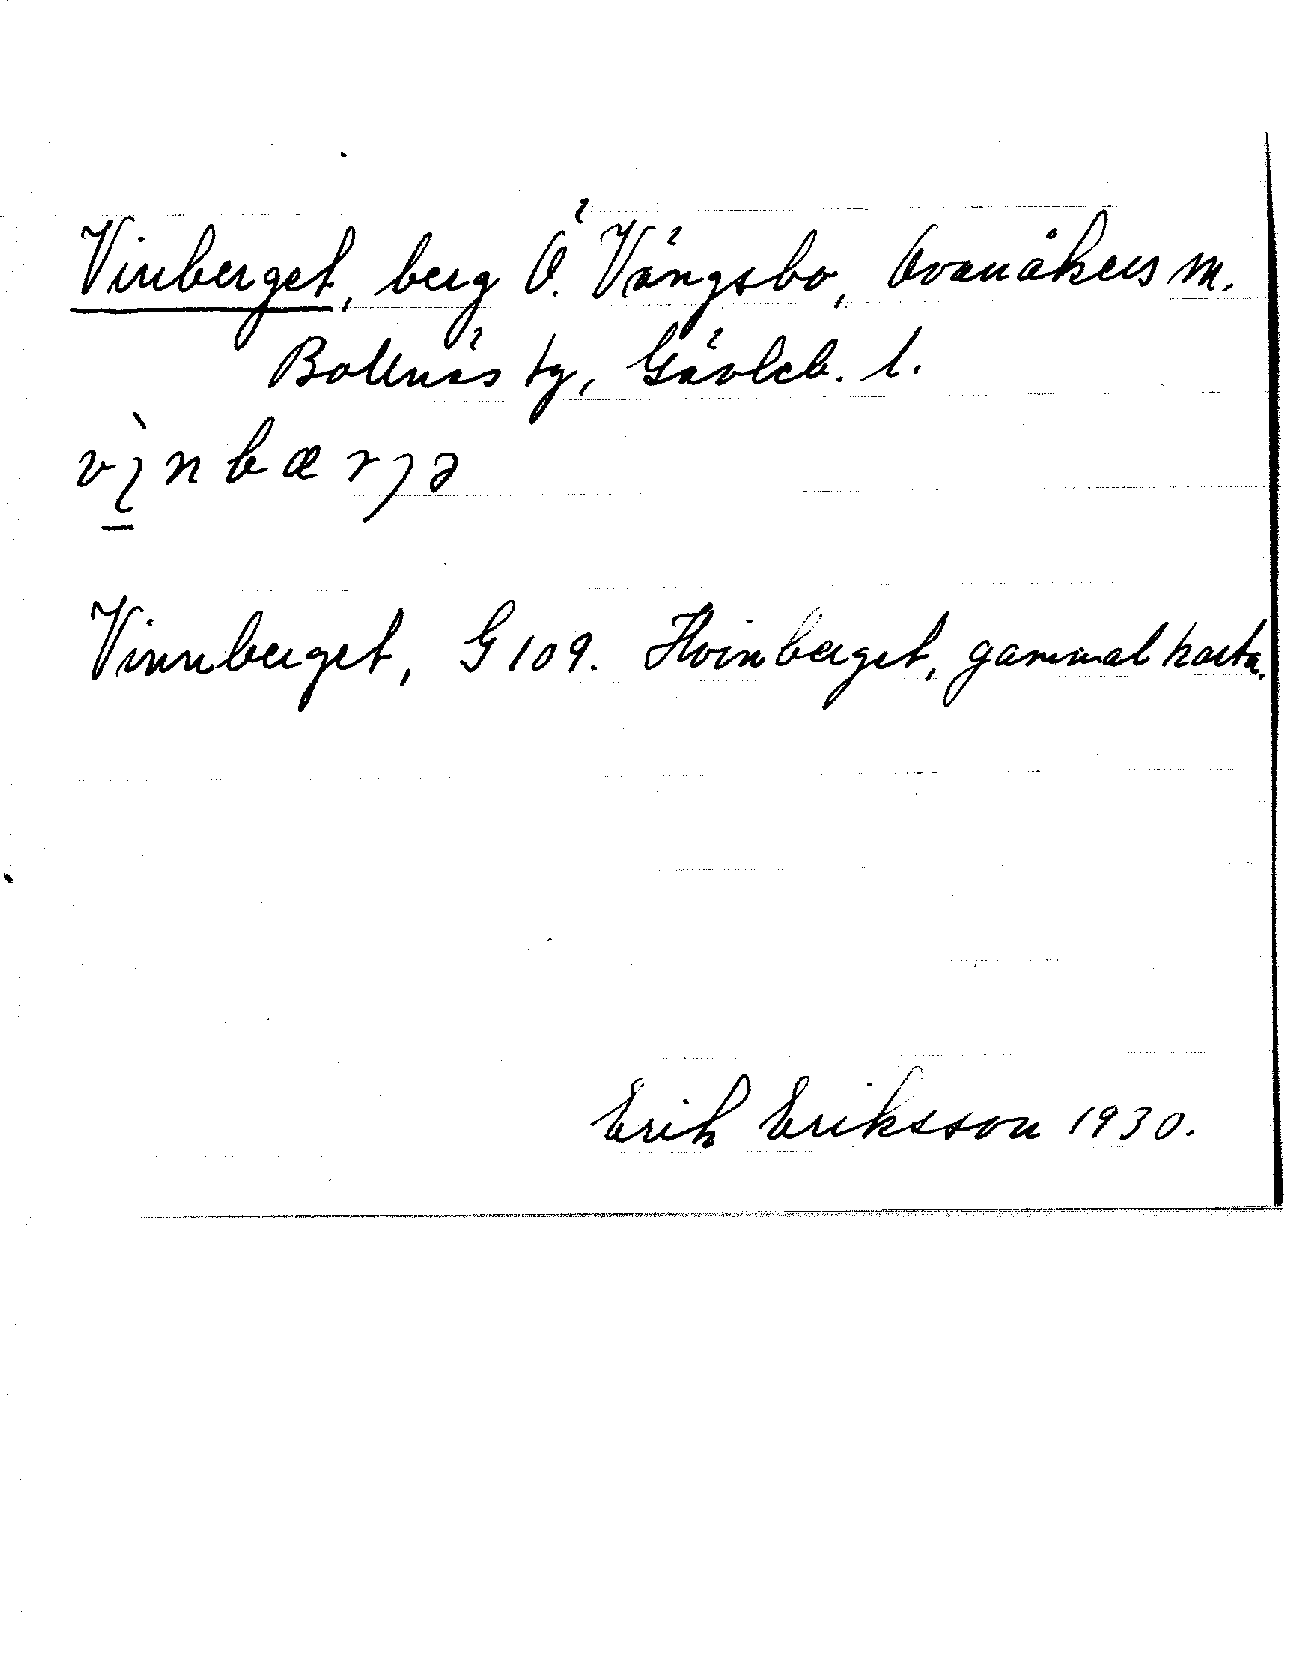 Vinberget, berg Ö. Vängsbo, Ovanåkers sn.
Bollnäs tg, Gävleb. l.
vìnbærjə
Vinnberget, G 109. Hvinberget, gammal karta.
Erik Eriksson 1930.